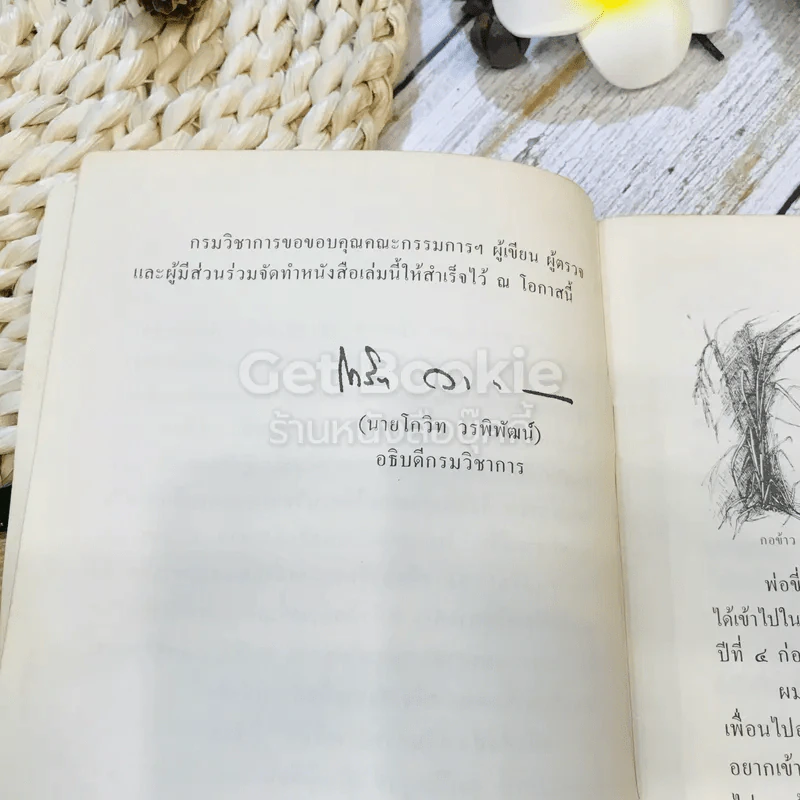 กรมวิชาการขอขอบคุณคณะกรรมการฯ ผู้เขียน ผู้ตรวจ
และผู้มีส่วนร่วมจัดทำหนังสือเล่มนี้ให้สำเร็จไว้ ณ โอกาสนี้
Get Bookie
ร้านหนังสือบุ๊คกี้
(นายโกวิท วรพิพัฒน์)
อธิบดีกรมวิชาการ
กอข้าว
พ่อขี่
ได้เข้าไปใน
ปีที่ ๔ ก่อ
ผม
เพื่อนไปอ
อยากเข้า